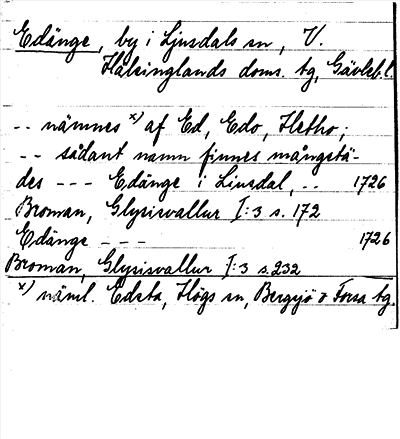 Edänge, by i Ljusdals sn, V.
Hälsinglands doms. tg, Gävleb. l.
-- nämnes x) af Ed, Edo, Hetho;
-- sådant namn finnes mångstä-
des --- Edänge i Liusdal, -- 1726
Broman, Glysisvallur I:3 s. 172
Edänge --- 1726
Broman, Glysisvallur I:3 s. 232
x) näml. Edsta, Högs sn, Bergsjö o Forsa tg.